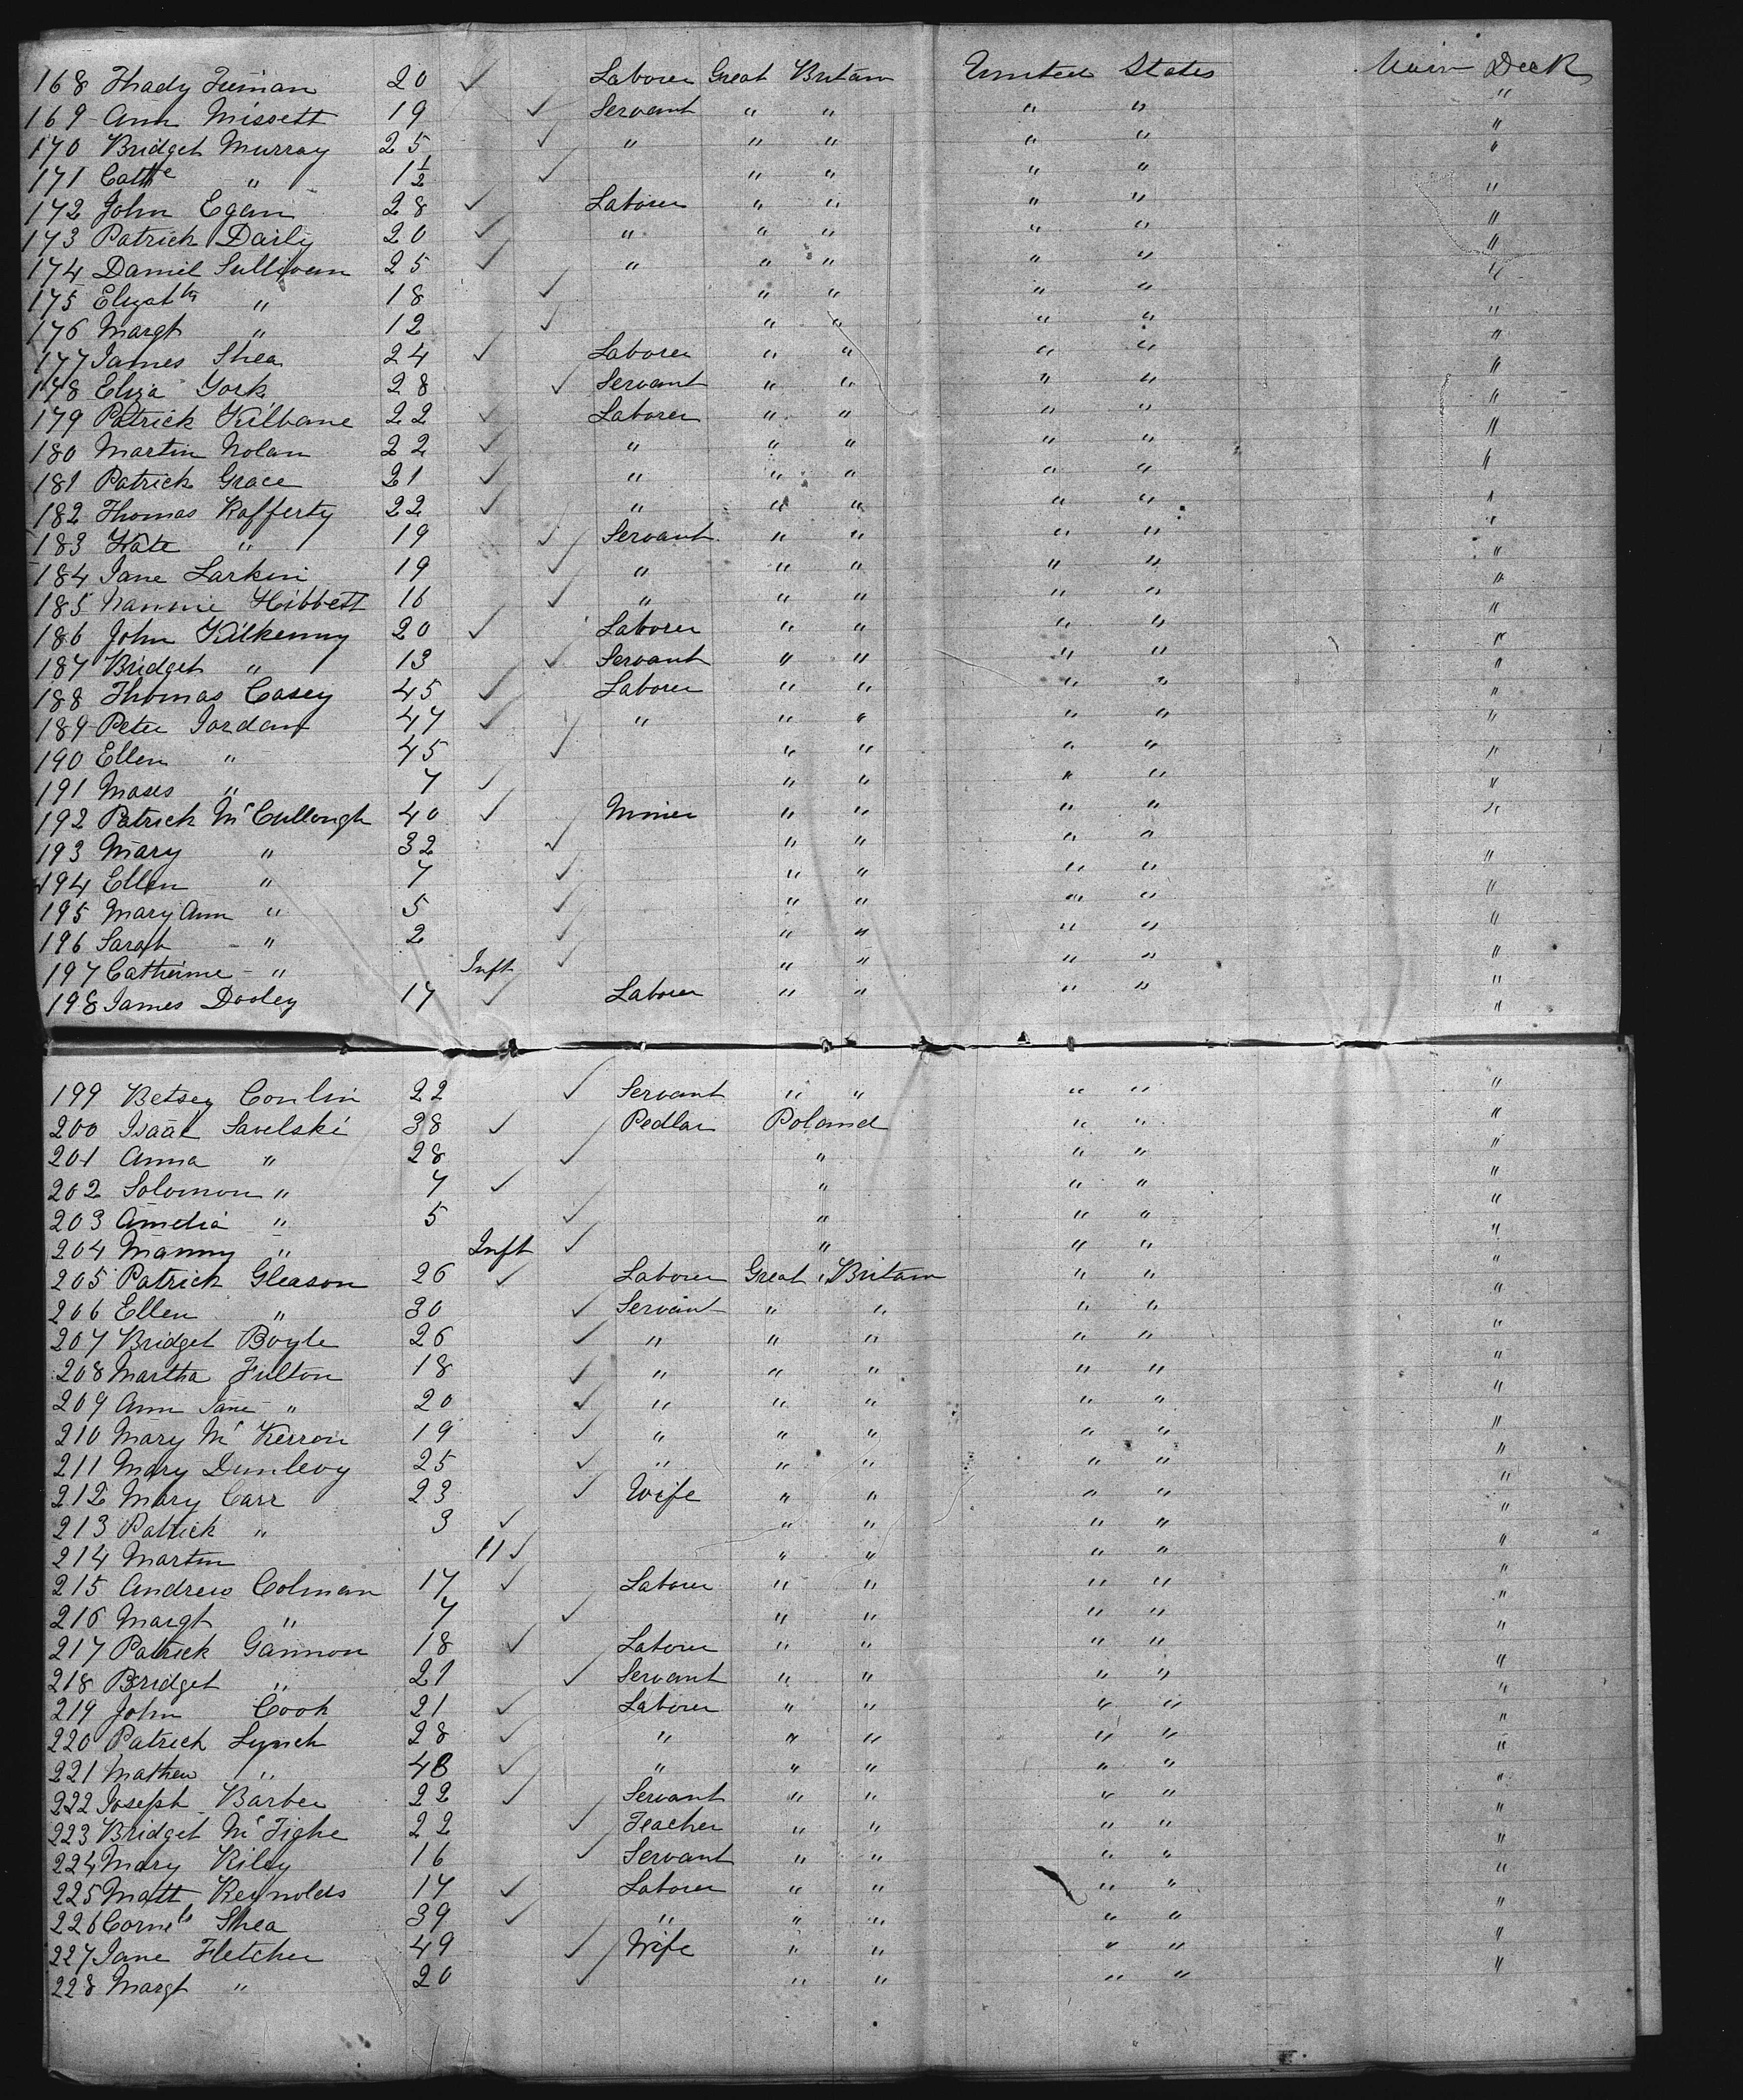 168 Thady Tiernan 20 ✓ Laborer Great Britain United States Main Deck
169 Ann Missett 19 ✓ Servant " " " " "
170 Bridget Murray 25 ✓ " " " " " "
171 Cathe " 1½ ✓ " " " " "
172 John Egan 28 ✓ Laborer " " " " "
173 Patrick Daily 20 ✓ " " " " " "
174 Daniel Sullivan 25 ✓ " " " " " "
175 Elizabth " 18 ✓ " " " " "
176 Margt " 12 ✓ " " " " "
177 James Shea 24 ✓ Laborer " " " " "
178 Eliza York 28 ✓ Servant " " " " "
179 Patrick Kilbane 22 ✓ Laborer " " " " "
180 Martin Nolan 22 ✓ " " " " " "
181 Patrick Grace 21 ✓ " " " " " "
182 Thomas Rafferty 22 ✓ " " " " " "
183 Kate " 19 ✓ Servant " " " " "
184 Jane Larkin 19 ✓ " " " " " "
185 Nannie Hibbett 16 ✓ " " " " " "
186 John Kilkenny 20 ✓ Laborer " " " " "
187 Bridget " 13 ✓ Servant " " " " "
188 Thomas Casey 45 ✓ Laborer " " " " "
189 Peter Jordan 47 ✓ " " " " " "
190 Ellen " 45 ✓ " " " " "
191 Moses " 7 ✓ " " " " "
192 Patrick McCullough 40 ✓ Miner " " " " "
193 Mary " 32 ✓ " " " " "
194 Ellen " 7 ✓ " " " " "
195 Mary Ann " 5 ✓ " " " " "
196 Sarah " 2 ✓ " " " " "
197 Catherine " Inft ✓ " " " " "
198 James Dooley 17 ✓ Laborer " " " " "
199 Betsey Conlin 22 ✓ Servant " " " " "
200 Isaac Savelski 38 ✓ Pedlar Poland " " "
201 Anna " 28 ✓ " " " "
202 Solomon " 7 ✓ " " " "
203 Amelia " 5 ✓ " " " "
204 Manny " Inft ✓ " " " "
205 Patrick Gleason 26 ✓ Laborer Great Britain " " "
206 Ellen " 30 ✓ Servant " " " " "
207 Bridget Boyle 26 ✓ " " " " " "
208 Martha Fulton 18 ✓ " " " " " "
209 Ann Jane " 20 ✓ " " " " " "
210 Mary McKerron 19 ✓ " " " " " "
211 Mary Dunlevy 25 ✓ " " " " " "
212 Mary Carr 23 ✓ Wife " " " " "
213 Patrick " 3 ✓ " " " " "
214 Martin 11 ✓ " " " " "
215 Andrew Colman 17 ✓ Laborer " " " " "
216 Margt " 7 ✓ " " " " "
217 Patrick Gannon 18 ✓ Laborer " " " " "
218 Bridget " 21 ✓ Servant " " " " "
219 John Cook 21 ✓ Laborer " " " " "
220 Patrick Lynch 28 ✓ " " " " " "
221 Mathew " 48 ✓ " " " " " "
222 Joseph Barber 22 ✓ Servant " " " " "
223 Bridget McTighe 22 ✓ Teacher " " " " "
224 Mary Riley 16 ✓ Servant " " " " "
225 Matt Reynolds 17 ✓ Laborer " " " " "
226 Cornels Shea 39 ✓ " " " " " "
227 Jane Fletcher 49 ✓ Wife " " " " "
228 Margt " 20 ✓ " " " "